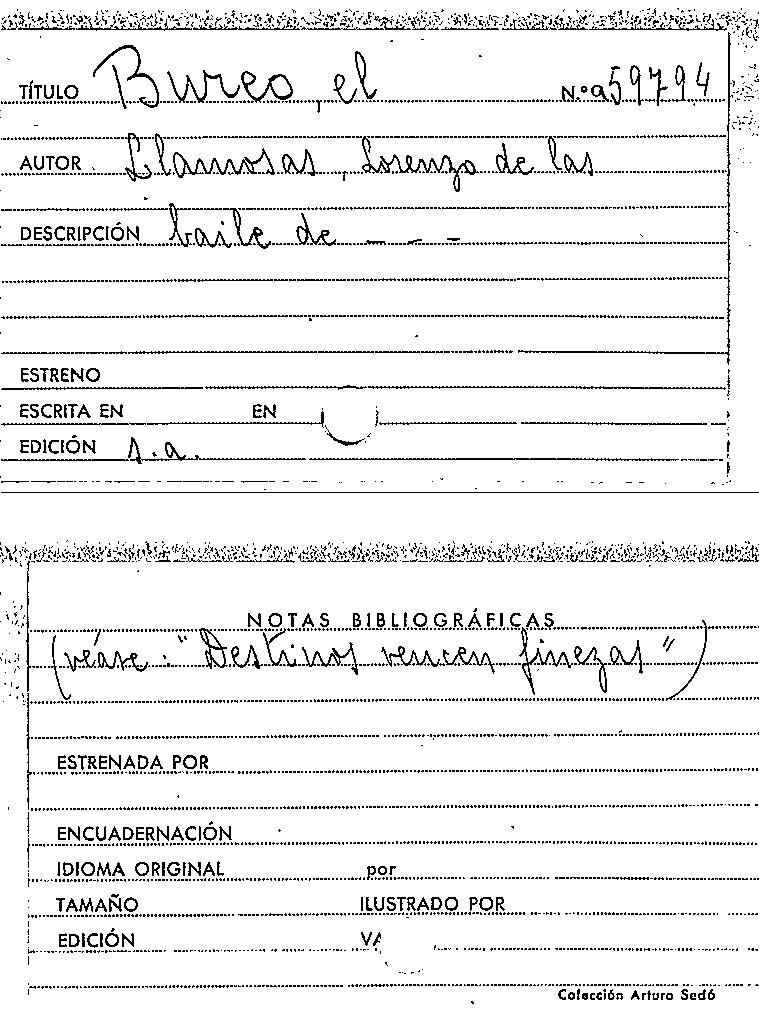 TÍTULO Bureo, el N.º a59794
AUTOR Llamosas, Lorenzo de las
DESCRIPCIÓN baile de - - -
ESTRENO
ESCRITA EN EN
EDICIÓN s.a.
NOTAS BIBLIOGRÁFICAS
(véase: "Destinos vencen finezas")
ESTRENADA POR
ENCUADERNACIÓN
IDIOMA ORIGINAL por
TAMAÑO ILUSTRADO POR
EDICIÓN
Colección Arturo Sedó